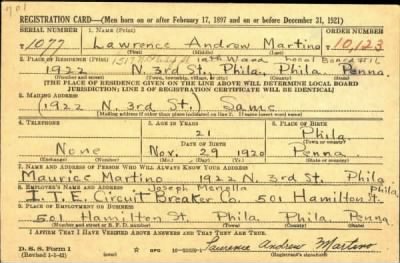 REGISTRATION CARD—(Men born on or after February 17, 1897 and on or before December 31, 1921)
SERIAL NUMBER 1. NAME (Print) ORDER NUMBER
1077 Lawrence Andrew Martino 10,123
2. PLACE OF RESIDENCE (Print) 19th Ward Local Board
1922 N. 3rd St. Phila. Phila Penna.
(Number and street) (Town, township, village, or city) (County) (State)
[THE PLACE OF RESIDENCE GIVEN ON THE LINE ABOVE WILL DETERMINE LOCAL BOARD
JURISDICTION; LINE 2 OF REGISTRATION CERTIFICATE WILL BE IDENTICAL]
3. MAILING ADDRESS
(1922 N. 3rd St.) Same
[Mailing address if other than place indicated on line 2. If same insert word same]
4. TELEPHONE 5. AGE IN YEARS 6. PLACE OF BIRTH
21 Phila.
DATE OF BIRTH (Town or county)
None Nov. 29 1920 Penna.
(Exchange) (Number) (Mo.) (Day) (Yr.) (State or country)
7. NAME AND ADDRESS OF PERSON WHO WILL ALWAYS KNOW YOUR ADDRESS
Maurice Martino 1922 N. 3rd St. Phila.
8. EMPLOYER'S NAME AND ADDRESS Joseph Phila
I. T. E. Circuit Breaker Co. 501 Hamilton St.
9. PLACE OF EMPLOYMENT OR BUSINESS
501 Hamilton St. Phila. Phila. Penna.
(Number and street or R. F. D. number) (Town) (County) (State)
I AFFIRM THAT I HAVE VERIFIED ABOVE ANSWERS AND THAT THEY ARE TRUE.
D. S. S. Form 1
(Revised 1-1-42) GPO Lawrence Andrew Martino
(Registrant's signature)